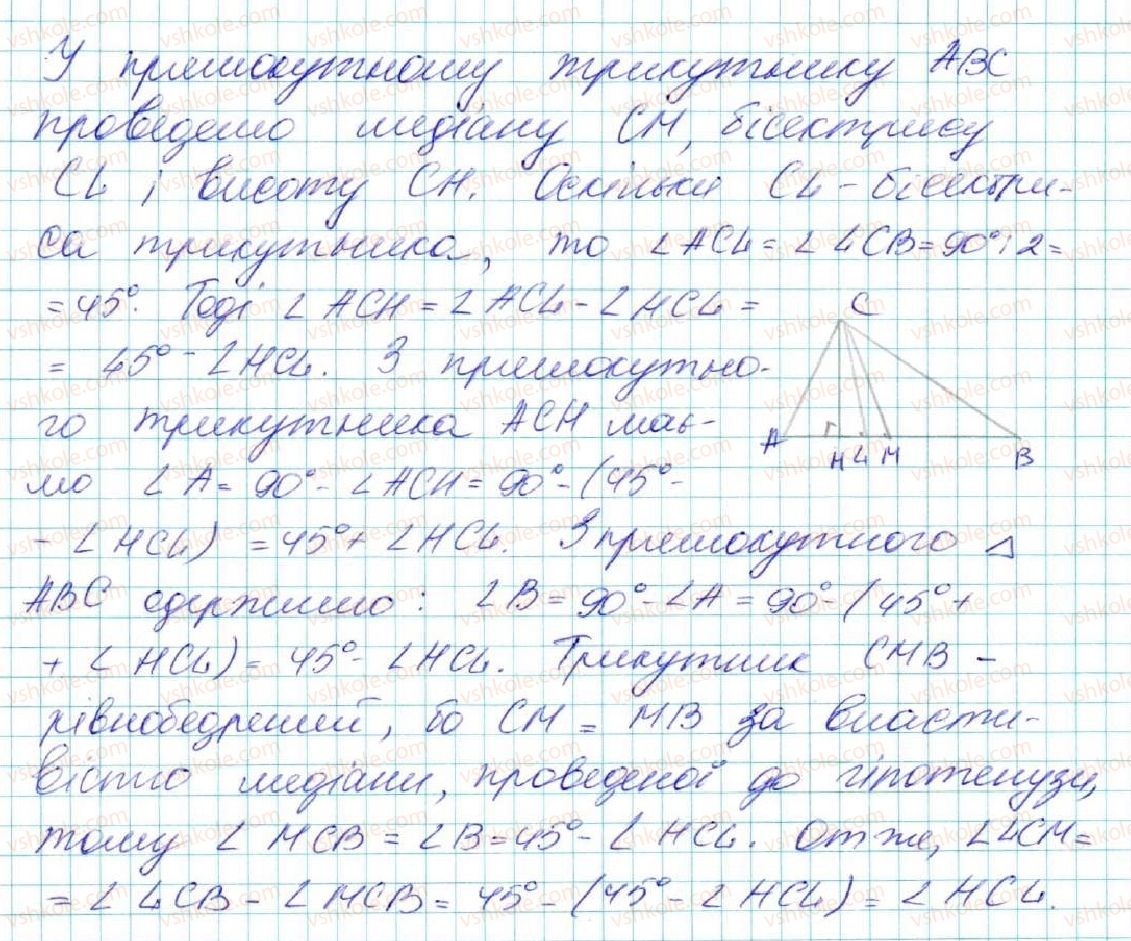 У прямокутному трикутнику ABC
проведено медіану CM, бісектрису
CL і висоту CH. Оскільки CL - бісектри-
са трикутника, то ∠ACL = ∠LCB = 90° : 2 =
= 45°. Тоді ∠ACH = ∠ACL - ∠HCL =
= 45° - ∠HCL. З прямокутно-
го трикутника ACH має-
мо ∠A = 90° - ∠ACH = 90° - (45° -
- ∠HCL) = 45° + ∠HCL. З прямокутного △
ABC одержимо: ∠B = 90° - ∠A = 90° - (45° +
+ ∠HCL) = 45° - ∠HCL. Трикутник CMB -
рівнобедрений, бо CM = MB за власти-
вістю медіани, проведеної до гіпотенузи,
тому ∠MCB = ∠B = 45° - ∠HCL. Отже, ∠LCM =
= ∠LCB - ∠MCB = 45° - (45° - ∠HCL) = ∠HCL.
C
A H L M B
vshkole.com